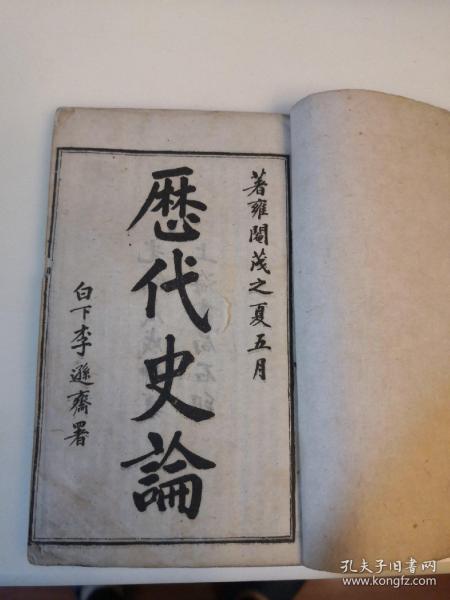 著雍閹茂之夏五月
歷代史論
白下李遜齋署
孔夫子旧书网
www.kongfz.com